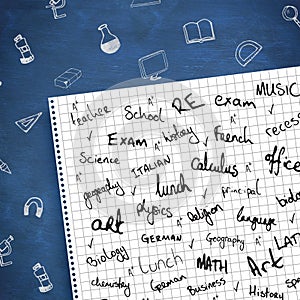 MUSIC
teacher School RE exam
Exam history French recess
Science ITALIAN Calculus office
geography lunch principal
art physics Religion language
Biology GERMAN Geography LAT
chemistry Lunch MATH Art
German Business History